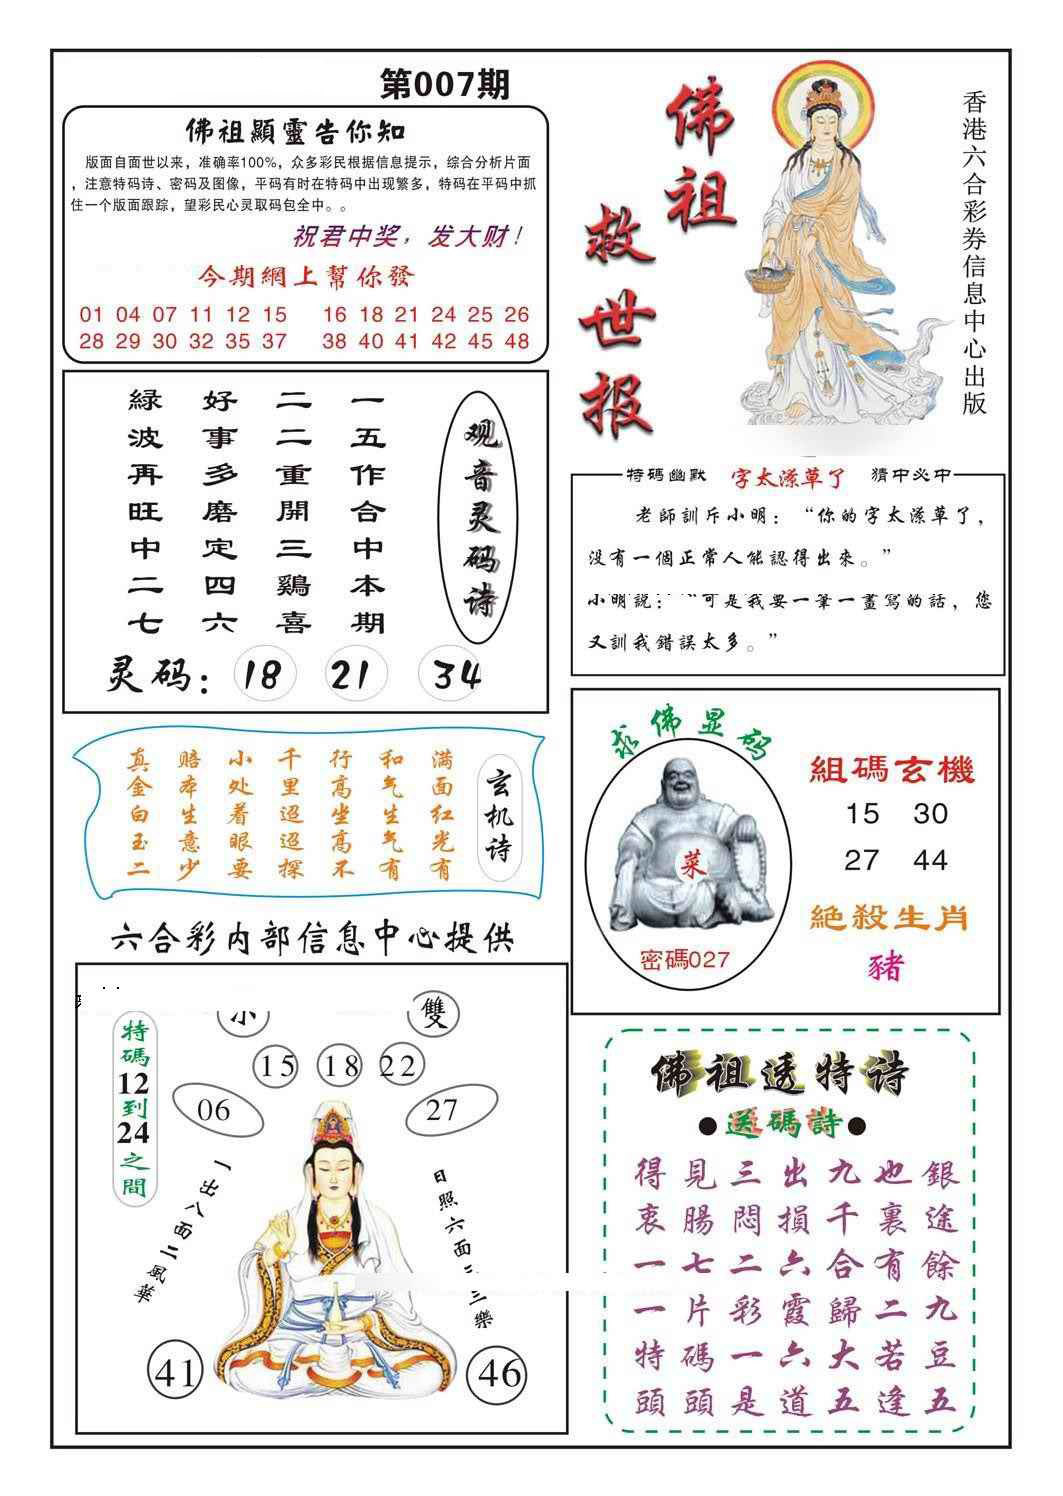 第007期
佛祖顯靈告你知
版面自面世以来，准确率100%，众多彩民根据信息提示，综合分析片面
，注意特码诗、密码及图像，平码有时在特码中出现繁多，特码在平码中抓
住一个版面跟踪，望彩民心灵取码包全中。。
祝君中奖，发大财！
今期網上幫你發
01 04 07 11 12 15 16 18 21 24 25 26
28 29 30 32 35 37 38 40 41 42 45 48
佛祖
救世报
香港六合彩券信息中心出版
观音灵码诗
一五作合中本期
二二重開三鷄喜
好事多磨定四六
緑波再旺中二七
灵码：18 21 34
特碼幽默 字太潦草了 猜中必中
老師訓斥小明：“你的字太潦草了，
没有一個正常人能認得出來。”
小明説：“可是我要一筆一畫寫的話，您
又訓我錯誤太多。”
玄机诗
满面红光有
和气生气有
行高坐高不
千里迢迢探
小处着眼要
赔本生意少
真金白玉二
求佛显码
菜
密碼027
組碼玄機
15 30
27 44
絕殺生肖
豬
六合彩内部信息中心提供
雙
特碼12到24之間
15 18 22
06 27
一出八面二風華
日照六面
樂
41 46
佛祖透特诗
●送碼詩●
得見三出九也銀
衷腸悶損千裏途
一七二六合有餘
一片彩霞歸二九
特碼一六大若豆
頭頭是道五逢五